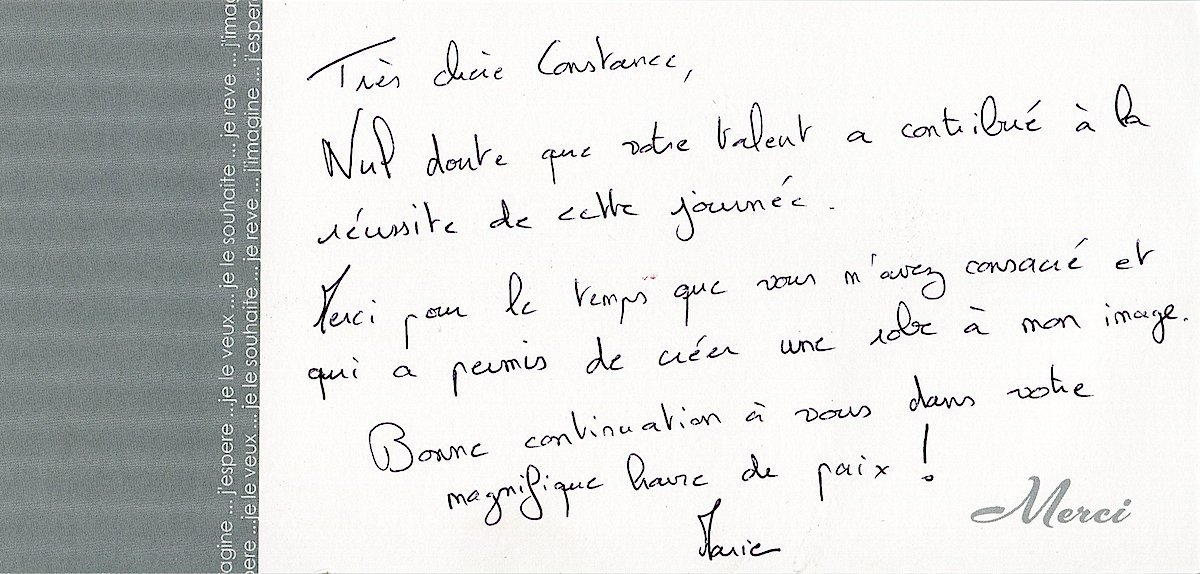 agine ... j'espere ...je le veux...je le souhaite ... je reve ... j'imag
pere ...je le veux ...je le souhaite... je reve ... j'imagine ... j'esper
Très chère Constance,
Nul doute que votre talent a contribué à la
réussite de cette journée.
Merci pour le temps que vous m'avez consacré et
qui a permis de créer une robe à mon image.
Bonne continuation à vous dans votre
magnifique havre de paix !
Marie
Merci